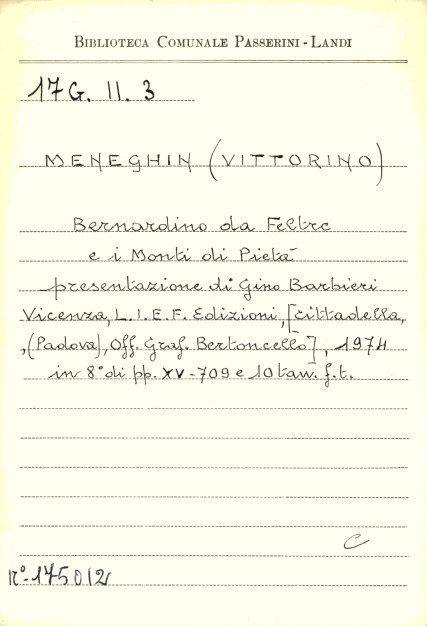 BIBLIOTECA COMUNALE PASSERINI-LANDI
17G. II. 3
MENEGHIN (VITTORINO)
Bernardino da Feltre
e i Monti di Pietà
presentazione di Gino Barbieri
Vicenza, L.I.E.F. Edizioni, [Cittadella,
,(Padova), Off. Graf. Bertoncello], 1974
in 8° di pp. XV-709 e 10 tav. f.t.
C
n°. 175012